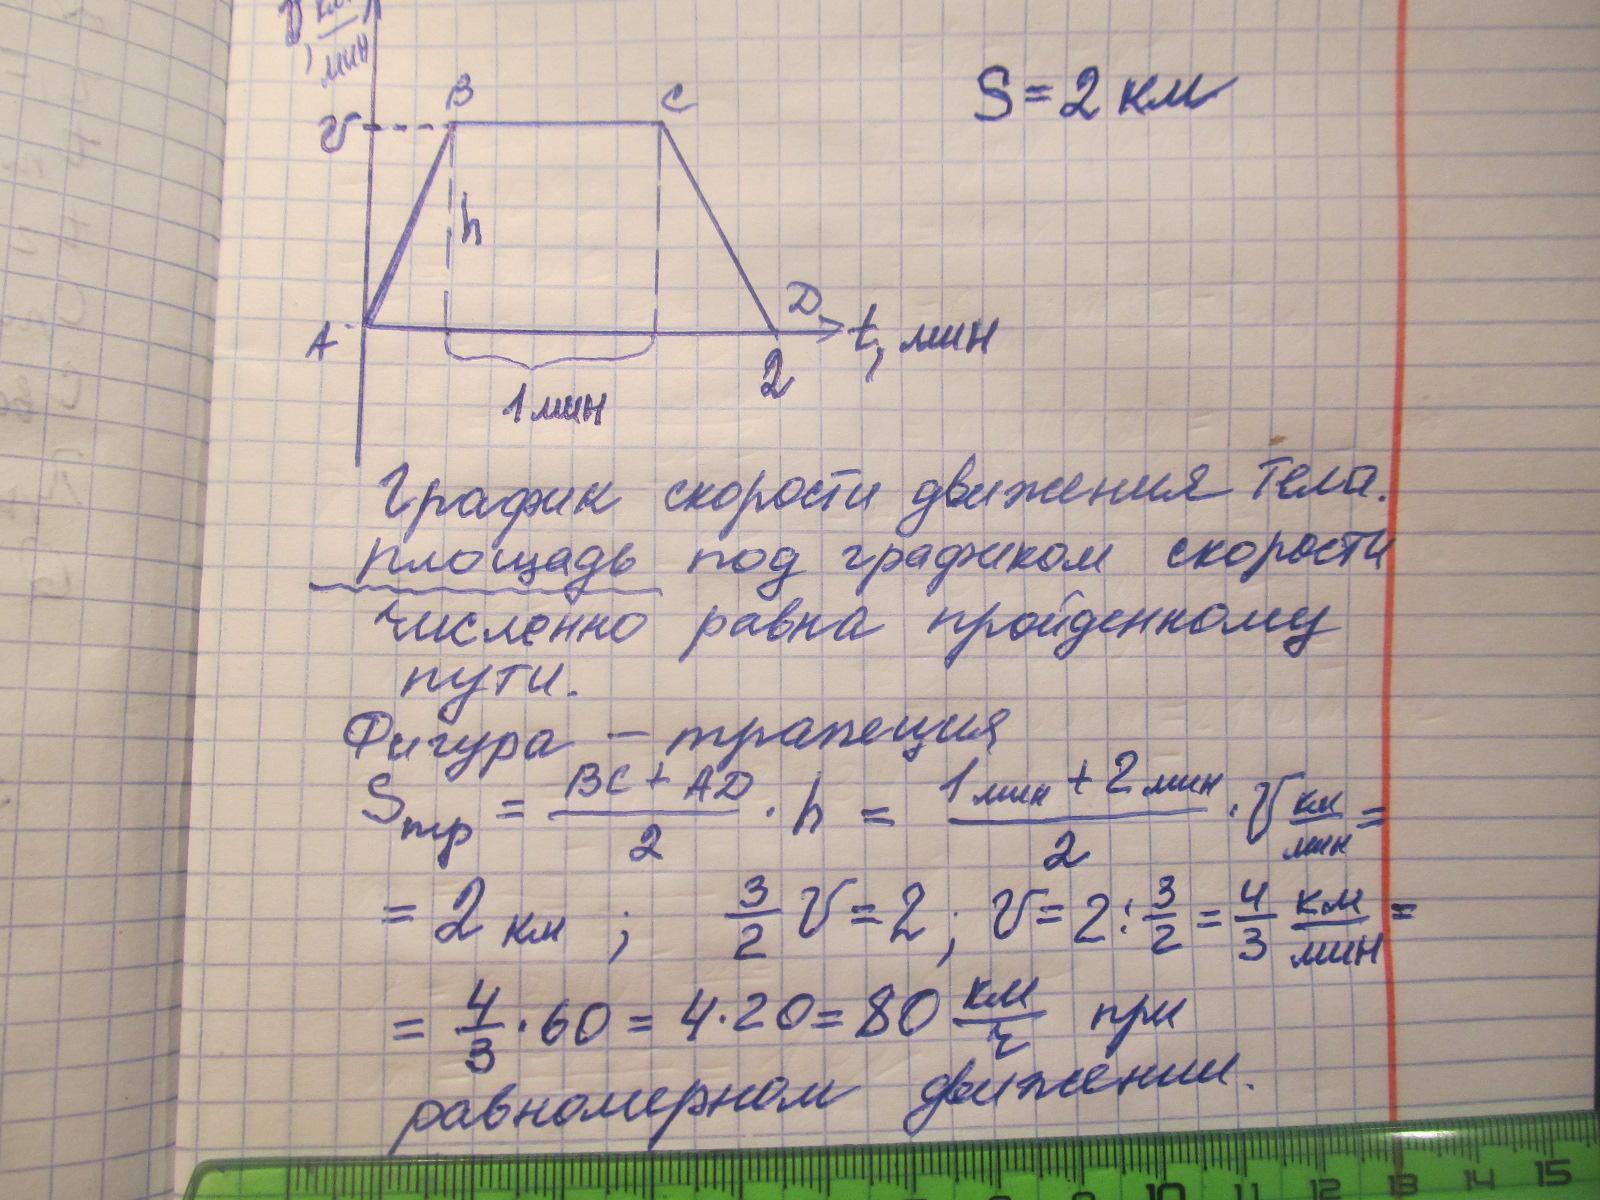 v, км/мин
S = 2 км
B C
v
h
A D
t, мин
2
1 мин
График скорости движения тела.
площадь под графиком скорости
численно равна пройденному
пути.
Фигура – трапеция
Sтр = (BC + AD)/2 · h = (1 мин + 2 мин)/2 · v км/мин =
= 2 км ; 3/2 v = 2 ; v = 2 : 3/2 = 4/3 км/мин =
= 4/3 · 60 = 4 · 20 = 80 км/ч при
равномерном движении.
10 11 12 13 14 15